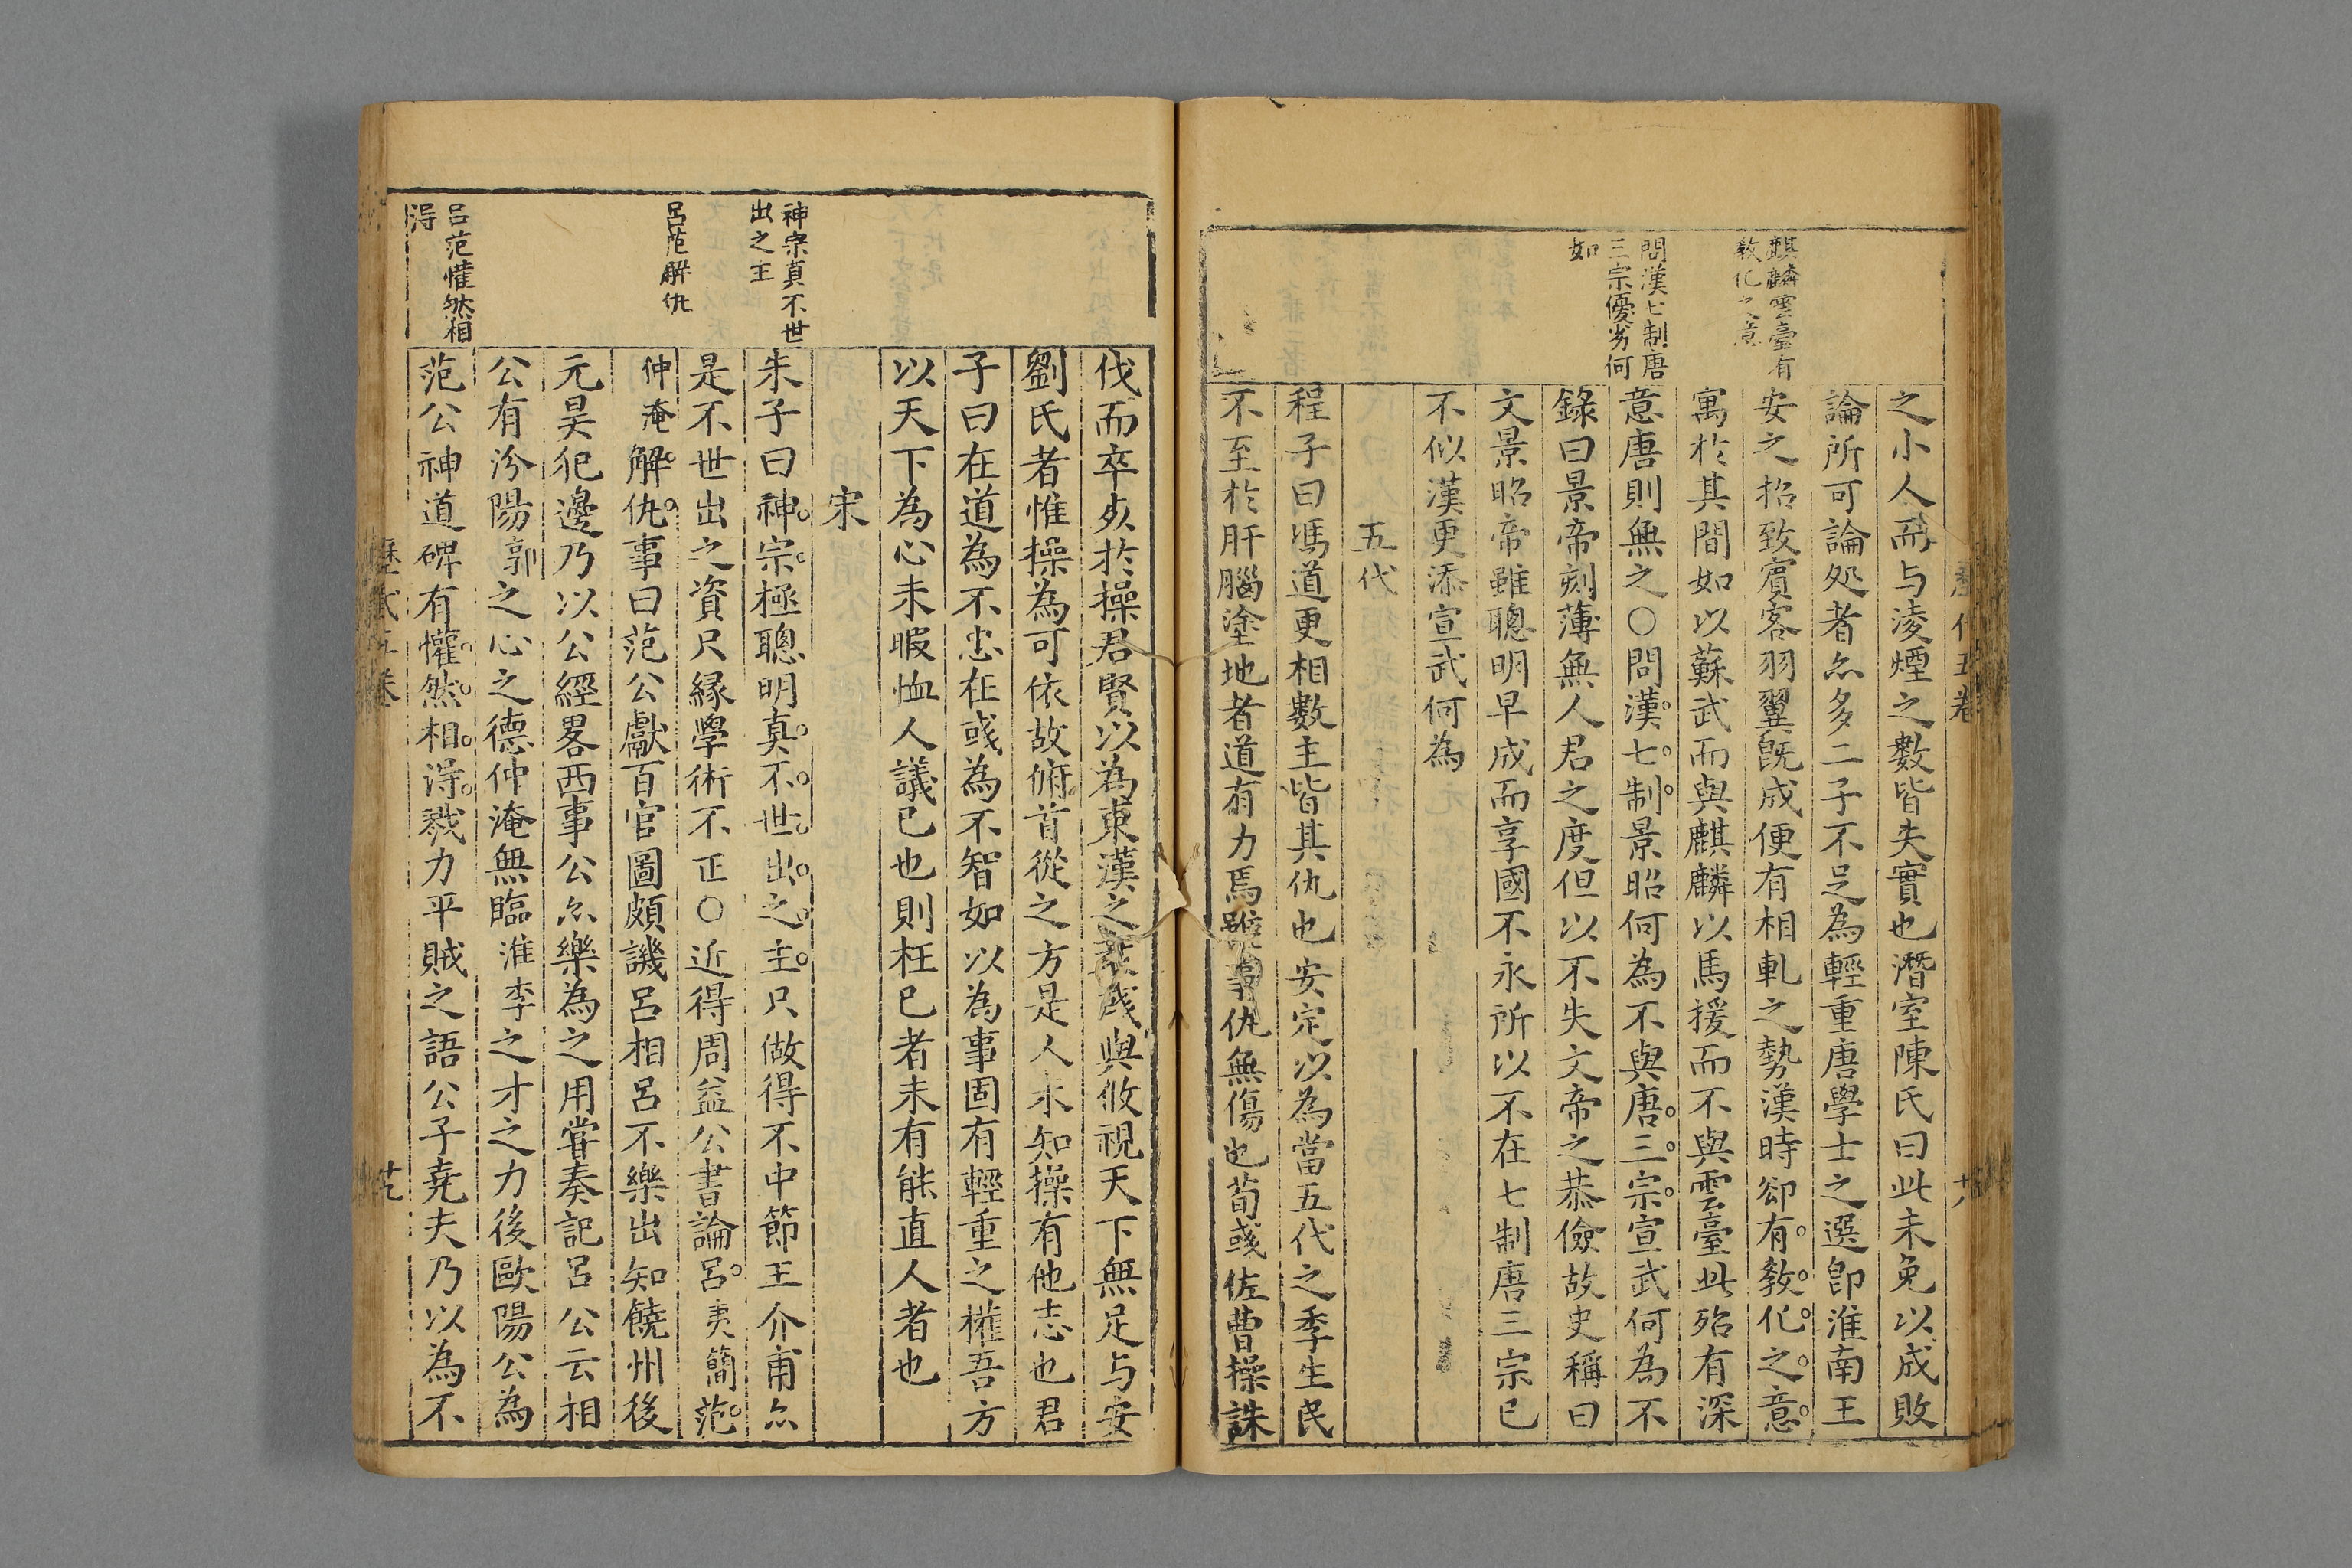 麒麟雲臺有
敎化之意
問漢七制唐
三宗優劣何
如
歷代五卷
十八
之小人而与淩煙之數皆失實也潛室陳氏曰此未免以成敗
論所可論処者尒多二子不足為輕重唐學士之選卽淮南王
安之招致賔客羽翼旣成便有相軋之勢漢時卻有敎化之意
寓於其間如以蘇武而與麒麟以馬援而不與雲臺此殆有深
意唐則無之○問漢七制景昭何為不與唐三宗宣武何為不
錄曰景帝刻薄無人君之度但以不失文帝之恭儉故史稱曰
文景昭帝雖聰明早成而享國不永所以不在七制唐三宗已
不似漢更添宣武何為
五代
程子曰馮道更相數主皆其仇也安定以為當五代之季生民
不至於肝腦塗地者道有力焉雖事仇無傷也荀彧佐曹操誅
神宗真不世
出之主
呂范解仇
呂范懽然相
淂
伐而卒死於操君賢以為東漢之衰彧與攸視天下無足与安
劉氏者惟操為可依故俯首從之方是人未知操有他志也君
子曰在道為不忠在彧為不智如以為事固有輕重之權吾方
以天下為心未暇恤人議已也則枉已者未有能直人者也
宋
朱子曰神宗極聰明真不世出之主只做得不中節王介甫尒
是不世出之資只緣學術不正○近得周益公書論呂夷簡范
仲淹解仇事曰范公獻百官圖頗譏呂相呂不樂出知饒州後
元昊犯邊乃以公經畧西事公尒樂為之用嘗奏記呂公云相
公有汾陽郭之心之德仲淹無臨淮李之才之力後歐陽公為
范公神道碑有懽然相淂戮力平賊之語公子堯夫乃以為不
歷代五卷
十九